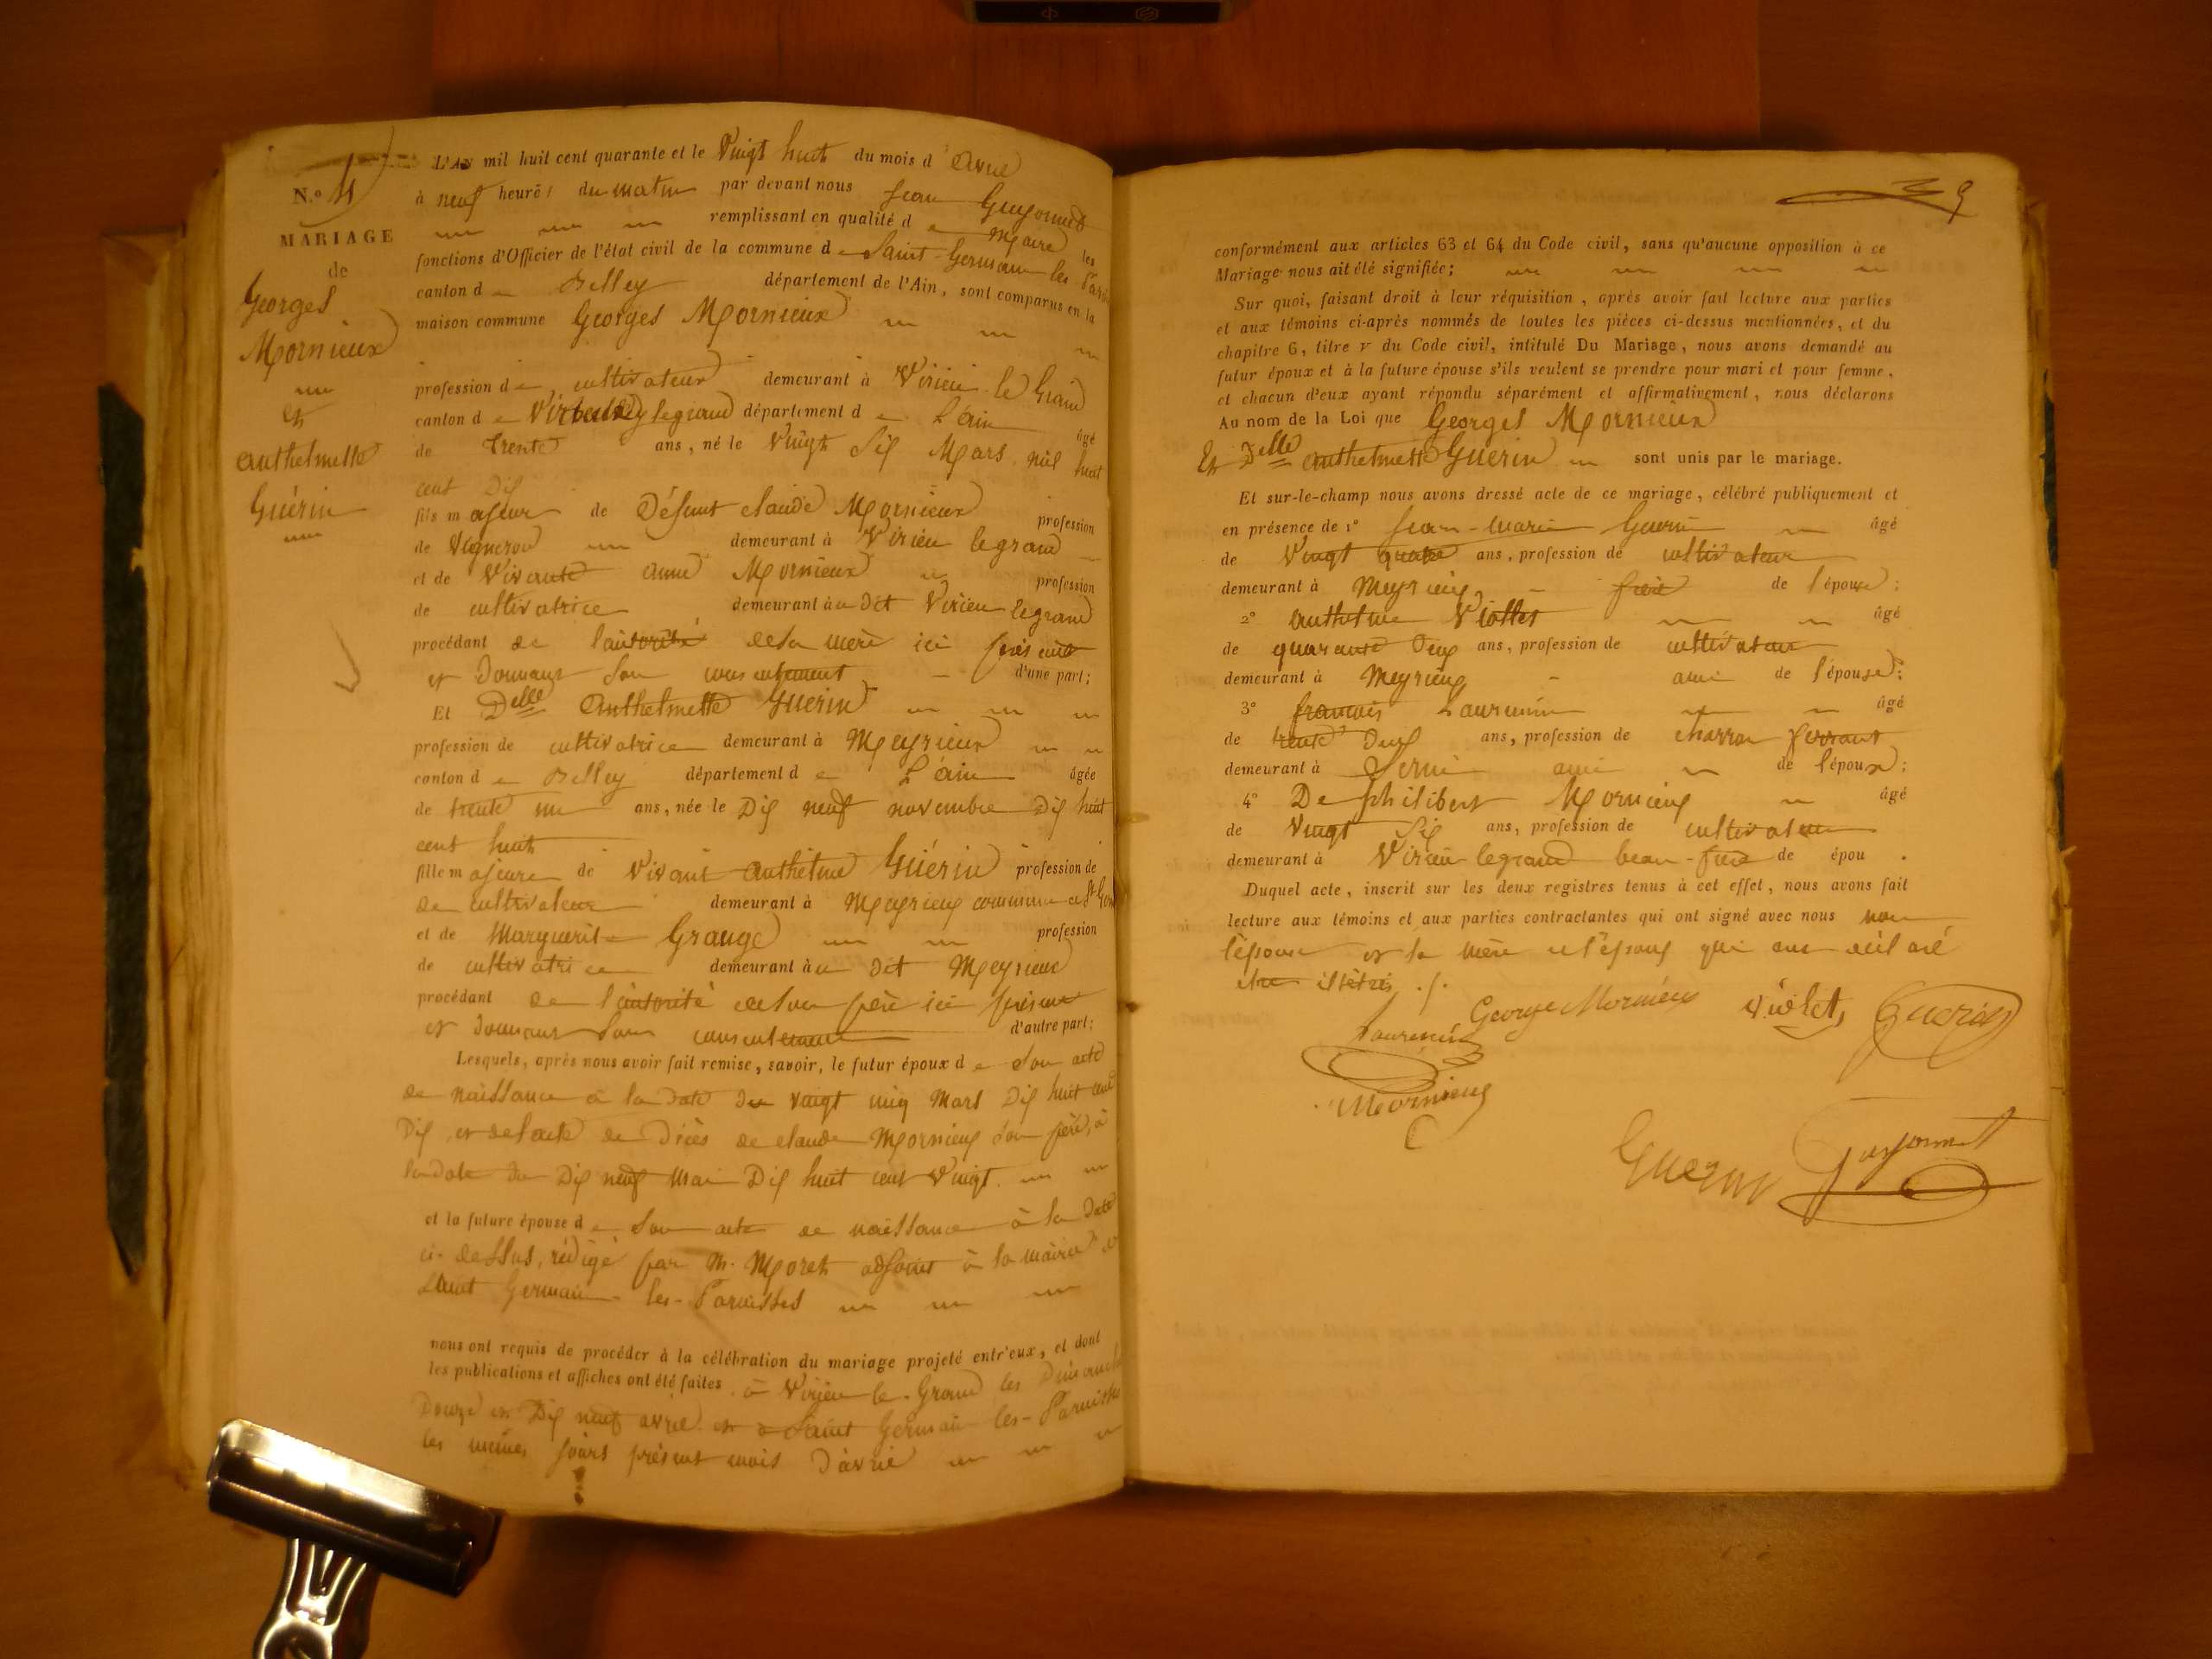 N.º 4
MARIAGE
de
Georges
Mornieux
et
Anthelmette
Guérin
L'AN mil huit cent quarante et le Vingt huit du mois d'Avril
à neuf heures du matin par devant nous Jean Guyonnet
remplissant en qualité de Maire les
fonctions d'Officier de l'état civil de la commune de Saint-Germain les Paroi
canton de Belley département de l'Ain, sont comparus en la
maison commune Georges Mornieux
profession de cultivateur demeurant à Virieu le Grand
canton de Virieu le grand département de L'ain âgé
de trente ans, né le Vingt Six Mars mil huit
cent Dix
fils majeur de Défunt claude Mornieux profession
de Vigneron demeurant à Virieu le grand
et de Vivante anne Mornieux profession
de cultivatrice demeurant au Dit Virieu legrand
procédant de l'autorité de sa mère ici présente
et Donnant Son consentement d'une part;
Et Delle Anthelmette Guérin
profession de cultivatrice demeurant à Meyrieux
canton de Belley département de L'ain âgée
de trente un ans, née le Dix neuf novembre Dix huit
cent huit
fille majeure de Vivant Anthelme Guérin profession de
de cultivateur demeurant à Meyrieux commune de St Ger
et de Marguerite Grange profession
de cultivatrice demeurant au Dit Meyrieux
procédant de l'autorité de son père ici présent
et Donnant Son consentement d'autre part;
Lesquels, après nous avoir fait remise, savoir, le futur époux de Son acte
de naissance à la Date du vingt cinq Mars Dix huit cent
Dix, et de l'acte de Décès de claude Mornieux Son père, à
la Date du Dix neuf Mai Dix huit cent Vingt
et la future épouse de Son acte de naissance à la Date
ci-dessus, rédigé par M. Moret adjoint à la mairie de
Saint Germain-les-Paroisses
nous ont requis de procéder à la célébration du mariage projeté entr'eux, et dont
les publications et affiches ont été faites à Virieu-le-Grand les Dimanches
Douze et Dix neuf avril et à Saint Germain-les-Paroisses
les mêmes jours présent mois D'avril
9
conformément aux articles 63 et 64 du Code civil, sans qu'aucune opposition à ce
Mariage nous ait été signifiée;
Sur quoi, faisant droit à leur réquisition, après avoir fait lecture aux parties
et aux témoins ci-après nommés de toutes les pièces ci-dessus mentionnées, et du
chapitre 6, titre v du Code civil, intitulé Du Mariage, nous avons demandé au
futur époux et à la future épouse s'ils veulent se prendre pour mari et pour femme,
et chacun d'eux ayant répondu séparément et affirmativement, nous déclarons
Au nom de la Loi que Georges Mornieux
Et Delle Anthelmette Guérin sont unis par le mariage.
Et sur-le-champ nous avons dressé acte de ce mariage, célébré publiquement et
en présence de 1º Jean-Marie Guérin âgé
de Vingt quatre ans, profession de cultivateur
demeurant à Meyrieux, frère de l'épouse;
2º Anthelme Viollet âgé
de quarante Deux ans, profession de cultivateur
demeurant à Meyrieux ami de l'épouse;
3º françois Laurencin âgé
de trente Deux ans, profession de charron ferrant
demeurant à ami de l'époux;
4º De philibert Mornieux âgé
de Vingt Six ans, profession de cultivateur
demeurant à Virieu legrand beau-frère de épou .
Duquel acte, inscrit sur les deux registres tenus à cet effet, nous avons fait
lecture aux témoins et aux parties contractantes qui ont signé avec nous non
l'épouse et la mère de l'époux qui ont déclaré
être illétrés ./.
George Mornieux Violet Guerin
Laurencin
Mornieux
Guerin Guyonnet